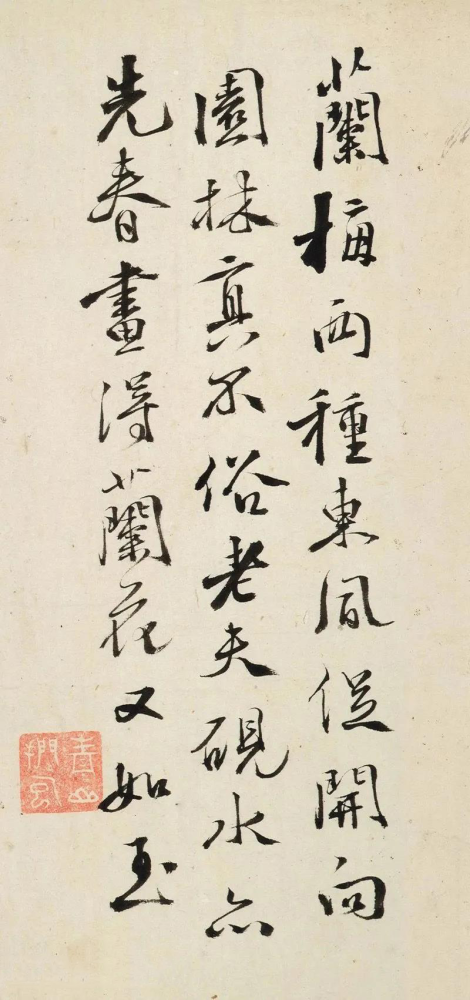 蘭梅两種東風促開向
園林真不俗老夫硯水亦
先春畫得蘭花又如玉